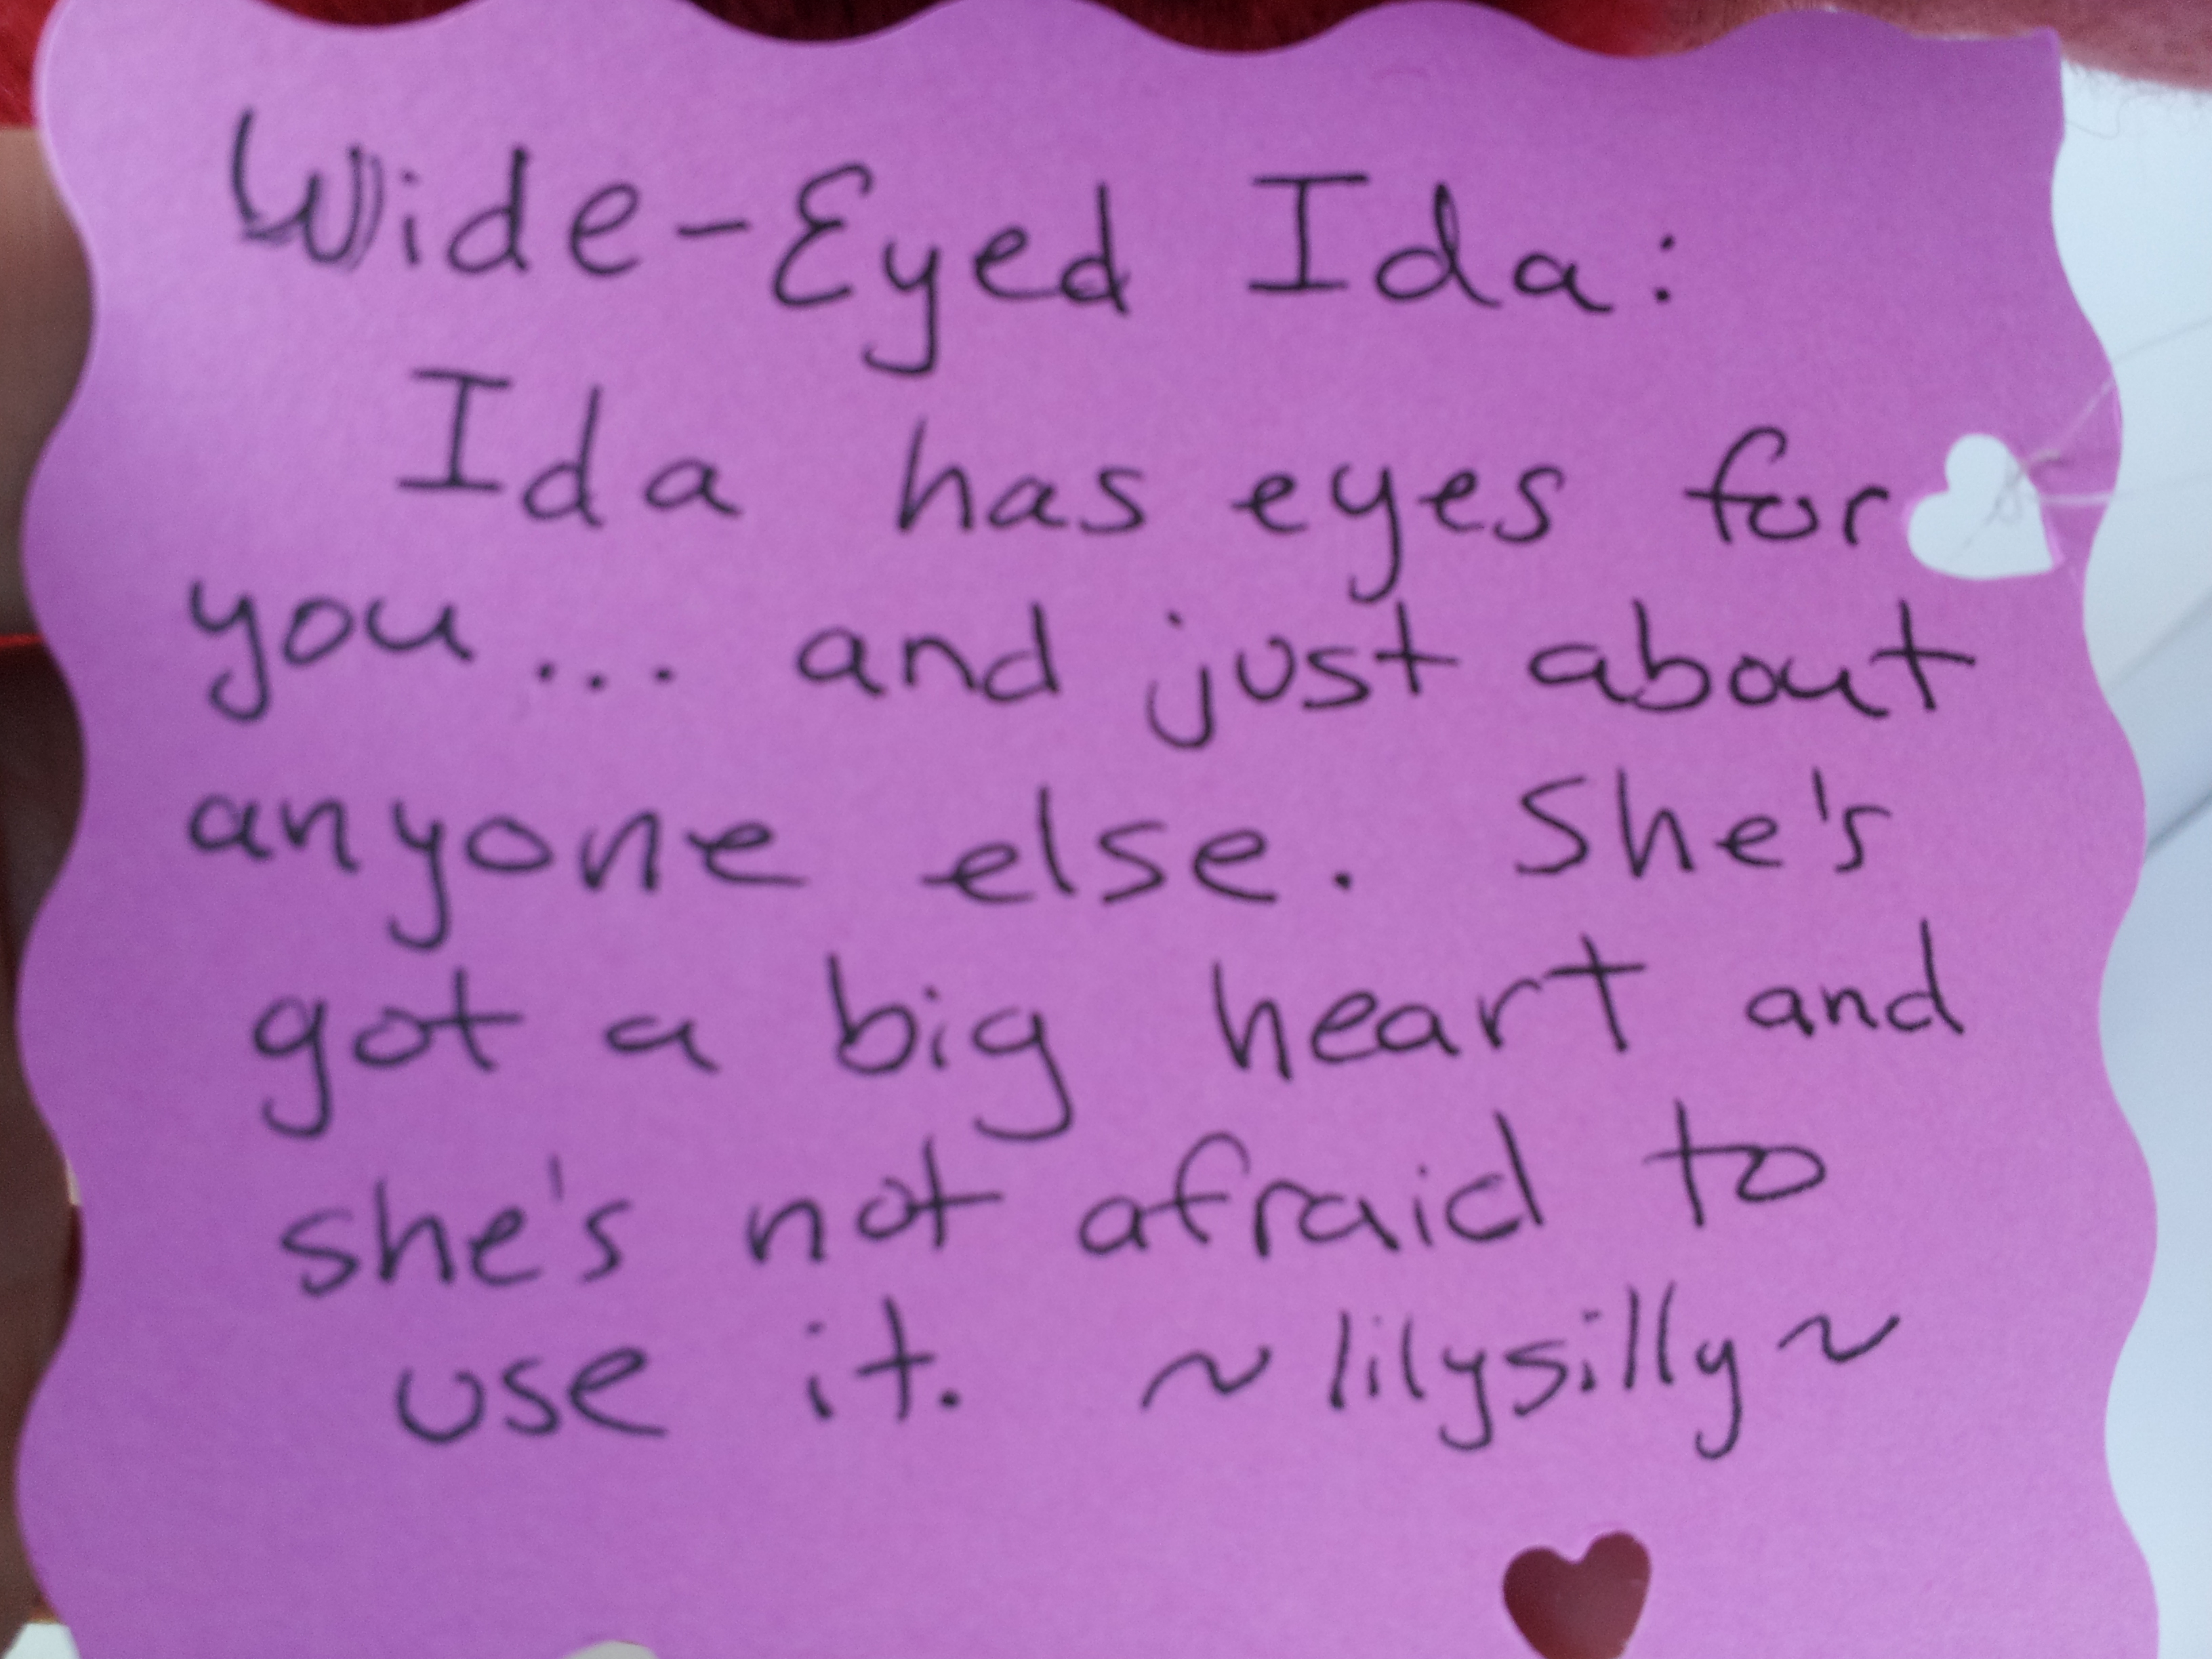 Wide-Eyed Ida:
Ida has eyes for
you... and just about
anyone else. She's
got a big heart and
she's not afraid to
use it. ~lilysilly~